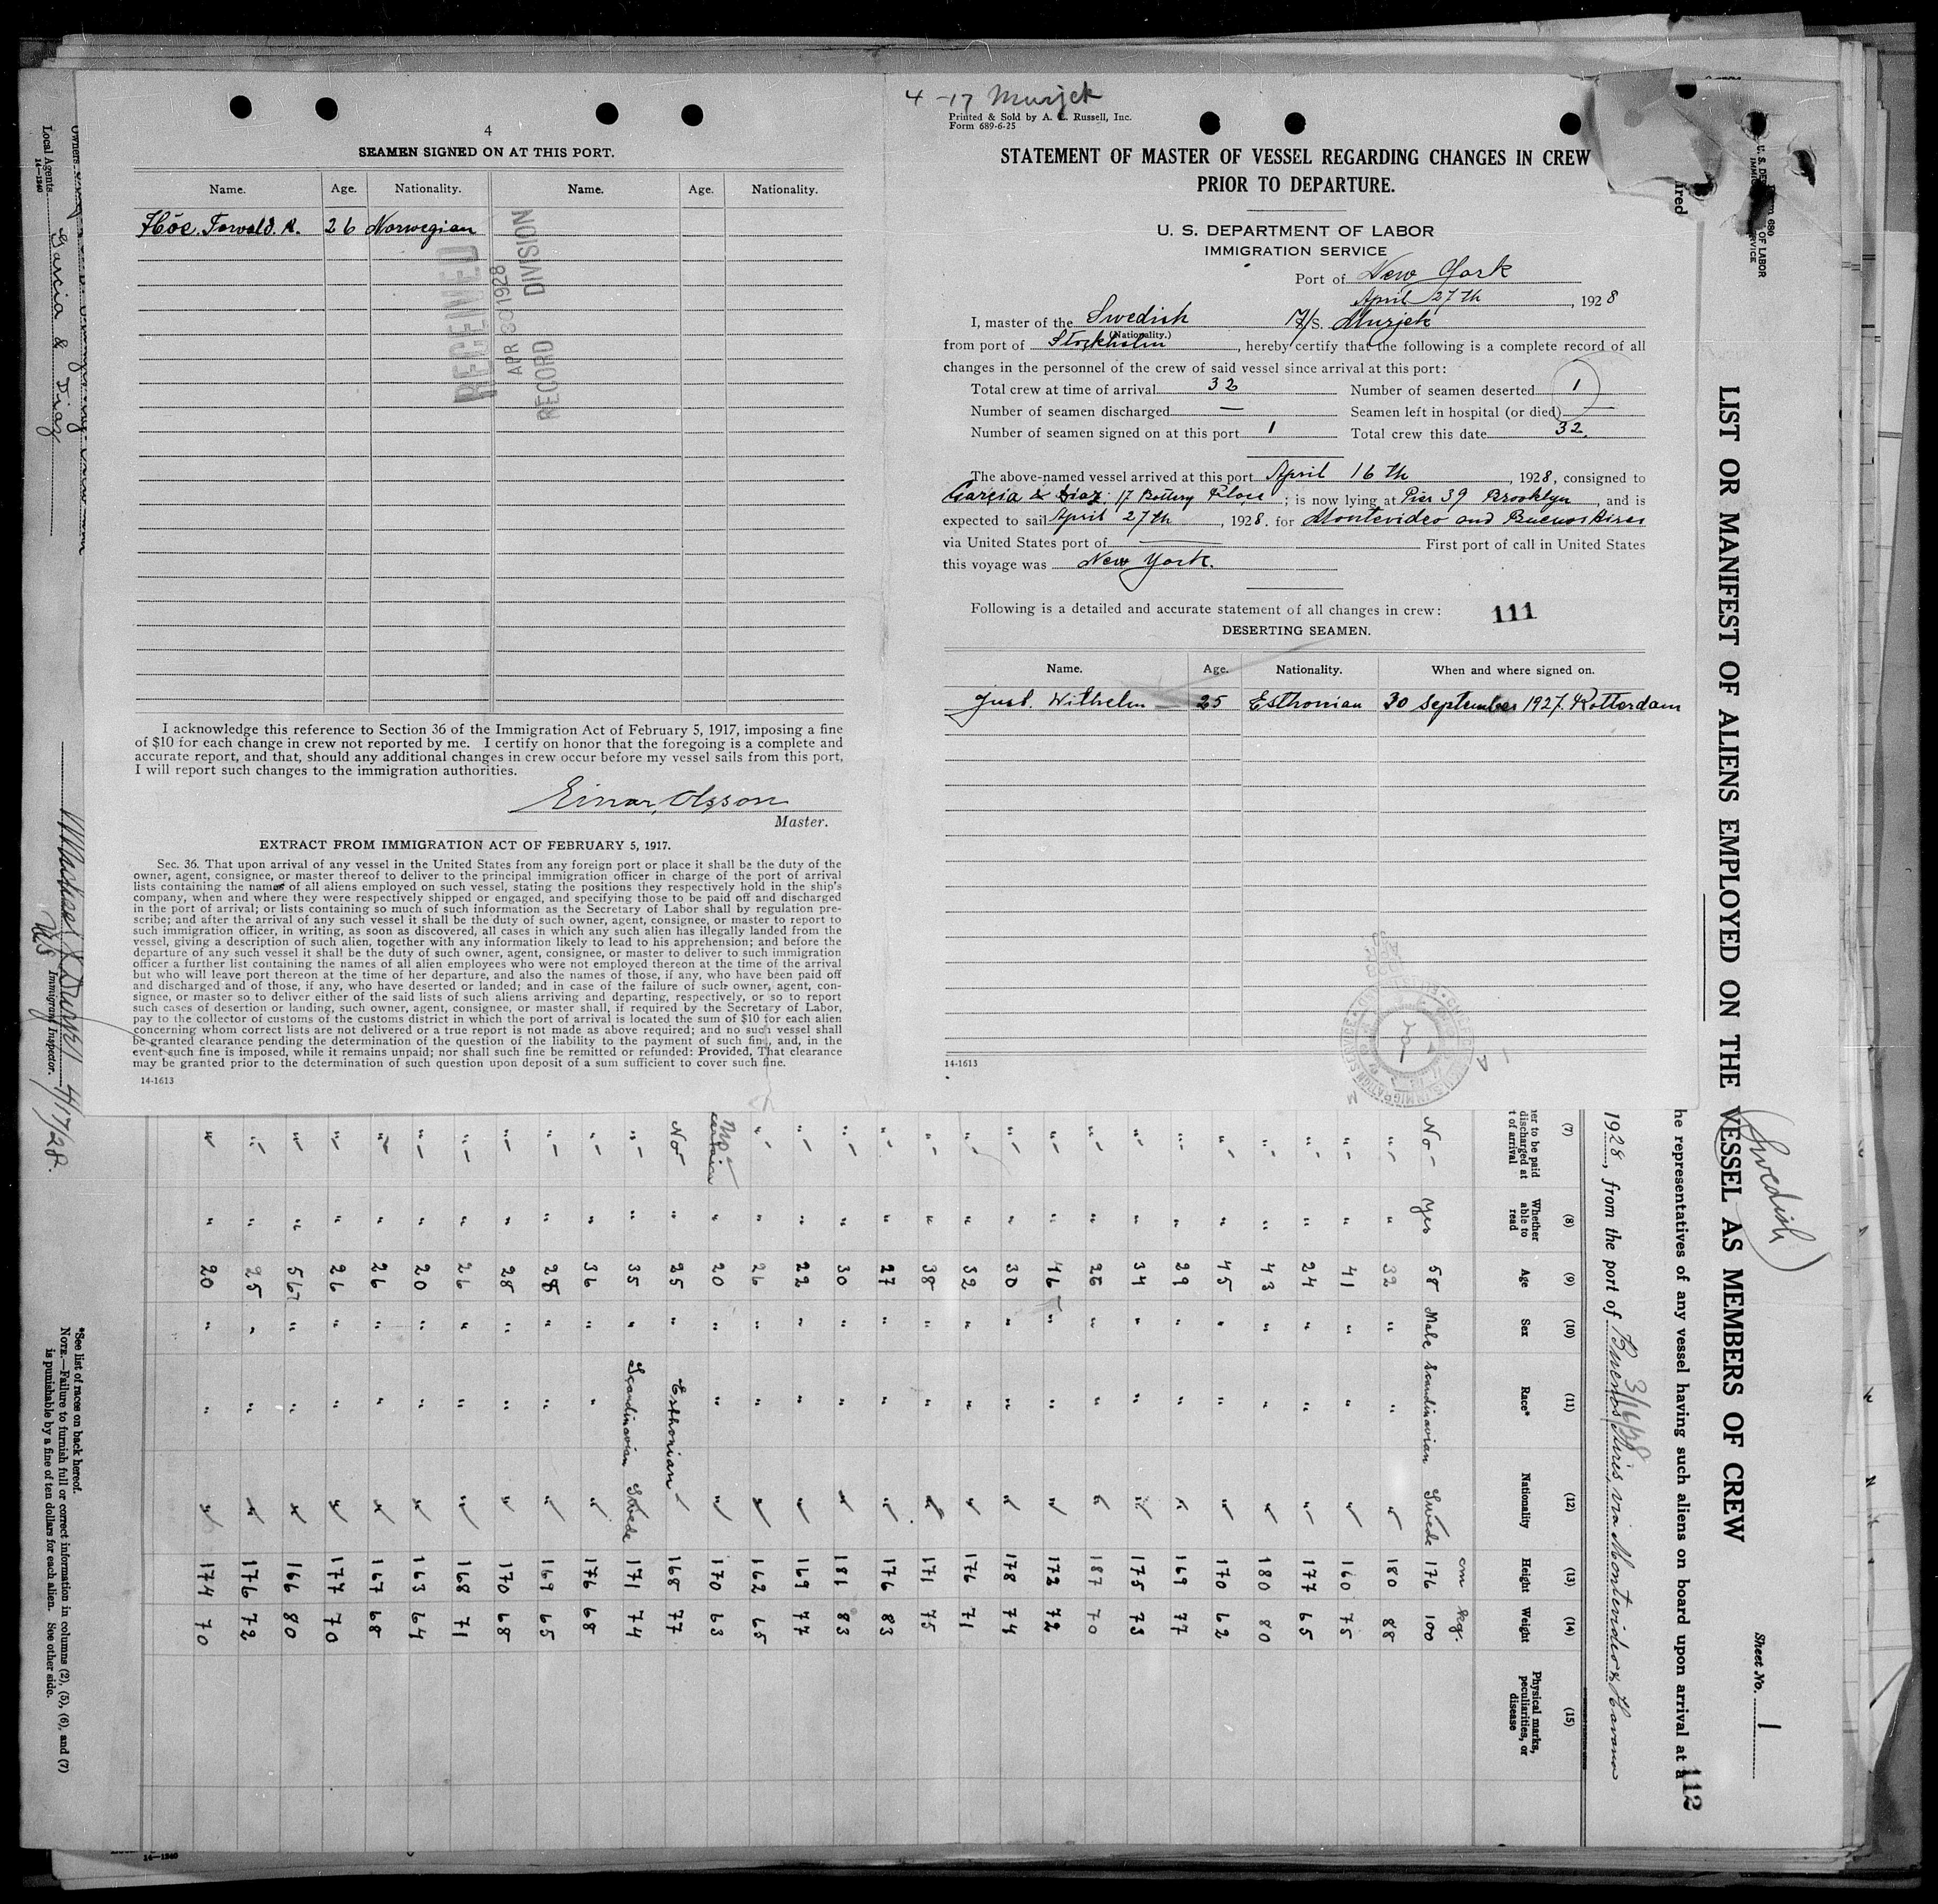 4
SEAMEN SIGNED ON AT THIS PORT.
Name. Age. Nationality. Name. Age. Nationality.
Torvald. R. 26 Norwegian
RECEIVED
APR 30 1928
RECORD DIVISION
I acknowledge this reference to Section 36 of the Immigration Act of February 5, 1917, imposing a fine
of $10 for each change in crew not reported by me. I certify on honor that the foregoing is a complete and
accurate report, and that, should any additional changes in crew occur before my vessel sails from this port,
I will report such changes to the immigration authorities.
Einar Olsson
Master.
EXTRACT FROM IMMIGRATION ACT OF FEBRUARY 5, 1917.
Sec. 36. That upon arrival of any vessel in the United States from any foreign port or place it shall be the duty of the
owner, agent, consignee, or master thereof to deliver to the principal immigration officer in charge of the port of arrival
lists containing the names of all aliens employed on such vessel, stating the positions they respectively hold in the ship's
company, when and where they were respectively shipped or engaged, and specifying those to be paid off and discharged
in the port of arrival; or lists containing so much of such information as the Secretary of Labor shall by regulation pre-
scribe; and after the arrival of any such vessel it shall be the duty of such owner, agent, consignee, or master to report to
such immigration officer, in writing, as soon as discovered, all cases in which any such alien has illegally landed from the
vessel, giving a description of such alien, together with any information likely to lead to his apprehension; and before the
departure of any such vessel it shall be the duty of such owner, agent, consignee, or master to deliver to such immigration
officer a further list containing the names of all alien employees who were not employed thereon at the time of the arrival
but who will leave port thereon at the time of her departure, and also the names of those, if any, who have been paid off
and discharged and of those, if any, who have deserted or landed; and in case of the failure of such owner, agent, con-
signee, or master so to deliver either of the said lists of such aliens arriving and departing, respectively, or so to report
such cases of desertion or landing, such owner, agent, consignee, or master shall, if required by the Secretary of Labor,
pay to the collector of customs of the customs district in which the port of arrival is located the sum of $10 for each alien
concerning whom correct lists are not delivered or a true report is not made as above required; and no such vessel shall
be granted clearance pending the determination of the question of the liability to the payment of such fine, and, in the
event such fine is imposed, while it remains unpaid; nor shall such fine be remitted or refunded: Provided, That clearance
may be granted prior to the determination of such question upon deposit of a sum sufficient to cover such fine.
14-1613
4-17 Murjek
Printed & Sold by A. C. Russell, Inc.
Form 689-6-25
STATEMENT OF MASTER OF VESSEL REGARDING CHANGES IN CREW
PRIOR TO DEPARTURE.
U. S. DEPARTMENT OF LABOR
IMMIGRATION SERVICE
Port of New York
April 27th, 1928
I, master of the Swedish M/S. Murjek
(Nationality.)
from port of Stockholm, hereby certify that the following is a complete record of all
changes in the personnel of the crew of said vessel since arrival at this port:
Total crew at time of arrival 32 Number of seamen deserted 1
Number of seamen discharged — Seamen left in hospital (or died) —
Number of seamen signed on at this port 1 Total crew this date 32.
The above-named vessel arrived at this port April 16th, 1928, consigned to
Garcia & Diaz 17 Battery Place; is now lying at Pier 39 Brooklyn, and is
expected to sail April 27th, 1928. for Montevideo and Buenos Aires
via United States port of — First port of call in United States
this voyage was New York.
Following is a detailed and accurate statement of all changes in crew: 111
DESERTING SEAMEN.
Name. Age. Nationality. When and where signed on.
Wilhelm 25 Esthonian 30 September 1927. Rotterdam
14-1613
LIST OR MANIFEST OF ALIENS EMPLOYED ON THE VESSEL AS MEMBERS OF CREW
(Swedish)
Sheet No. 1
112
he representatives of any vessel having such aliens on board upon arrival at a
1928, from the port of Buenos Aires via Montevideo & Havana
3/16/28
(7) (8) (9) (10) (11) (12) (13) (14) (15)
her to be paid discharged at t of arrival Whether able to read Age Sex Race* Nationality Height Weight Physical marks, peculiarities, or disease
cm kg.
No - Yes 58 Male Scandinavian Swede 176 100
" " 32 " " " 180 88
" " 41 " " " 160 75
" " 24 " " " 177 65
" " 43 " " " 180 80
" " 45 " " " 170 62
" " 29 " " " 169 77
" " 34 " " " 175 73
" " 26 " " " 187 70
" " 46 " " " 172 72
" " 30 " " " 178 74
" " 32 " " " 176 71
" " 38 " " " 171 75
" " 27 " " " 176 83
" " 30 " " " 181 83
" " 22 " " " 169 77
" " 26 " " " 162 65
" 20 " " " 170 63
No " 25 " Esthonian 168 77
" " 35 " Scandinavian Swede 171 74
" " 36 " " " 176 68
" " 28 " " " 169 65
" " 28 " " " 170 68
" " 26 " " " 168 71
" " 20 " " " 163 64
" " 26 " " " 167 68
" " 26 " " " 177 70
" " 56 " " " 166 80
" " 25 " " " 176 72
" " 20 " " " 174 70
*See list of races on back hereof.
NOTE.—Failure to furnish full or correct information in columns (2), (5), (6), and (7)
is punishable by a fine of ten dollars for each alien. See other side.
Owners
Local Agents Garcia & Diaz
14-1240
Immigrant Inspector.
4/17/28.
14-1240